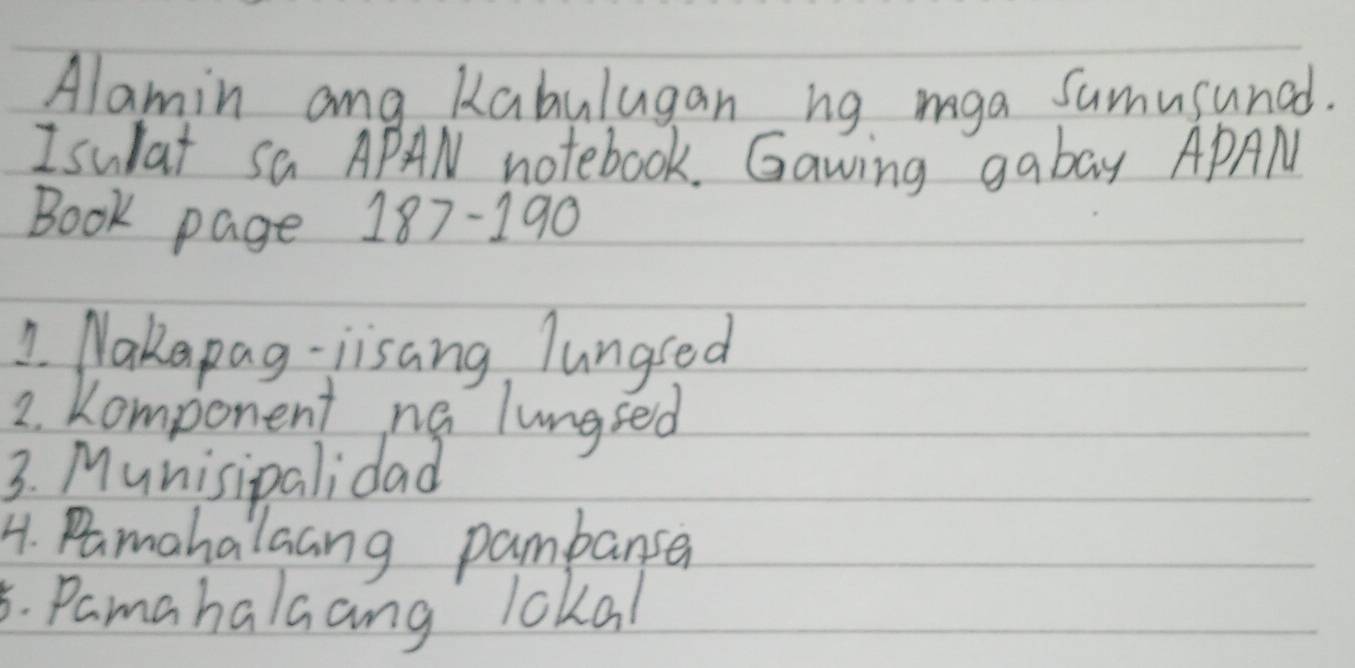 Alamin ang Kabulugan ng mga Sumusunod.
Isulat sa APAN notebook. Gawing gabay APAN
Book page 187-190
1. Nakapag-iisang lungsod
2. Komponent na lungsod
3. Munisipalidad
4. Pamahalaang pambansa
5. Pamahalaang lokal